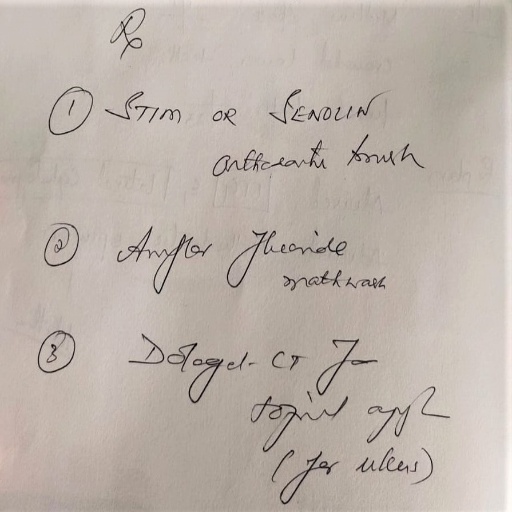 Rx
① STIM OR SENOLIN
orthodontic brush
② Amflor Fluoride
mathwash
③ Dologel-CT for
topical appl
(for ulcers)